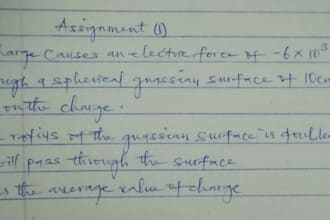 Assignment (1)
harge causes an electric force of -6 × 10³
ough a spherical guassian surface of 10cm
on the charge.
radius of the guassian surface is double
will pass through the surface
s the average value of charge